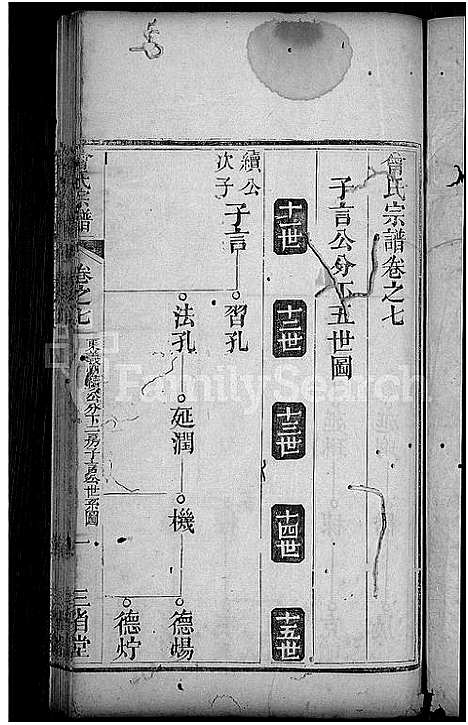 曾氏宗譜卷之七
子言公分下五世圖
十一世
十二世
十三世
十四世
十五世
續公
次子
子言
習孔
法孔
延潤
機
德暘
德㣔
曾氏宗譜
卷之七
一
三省堂
FamilySearch